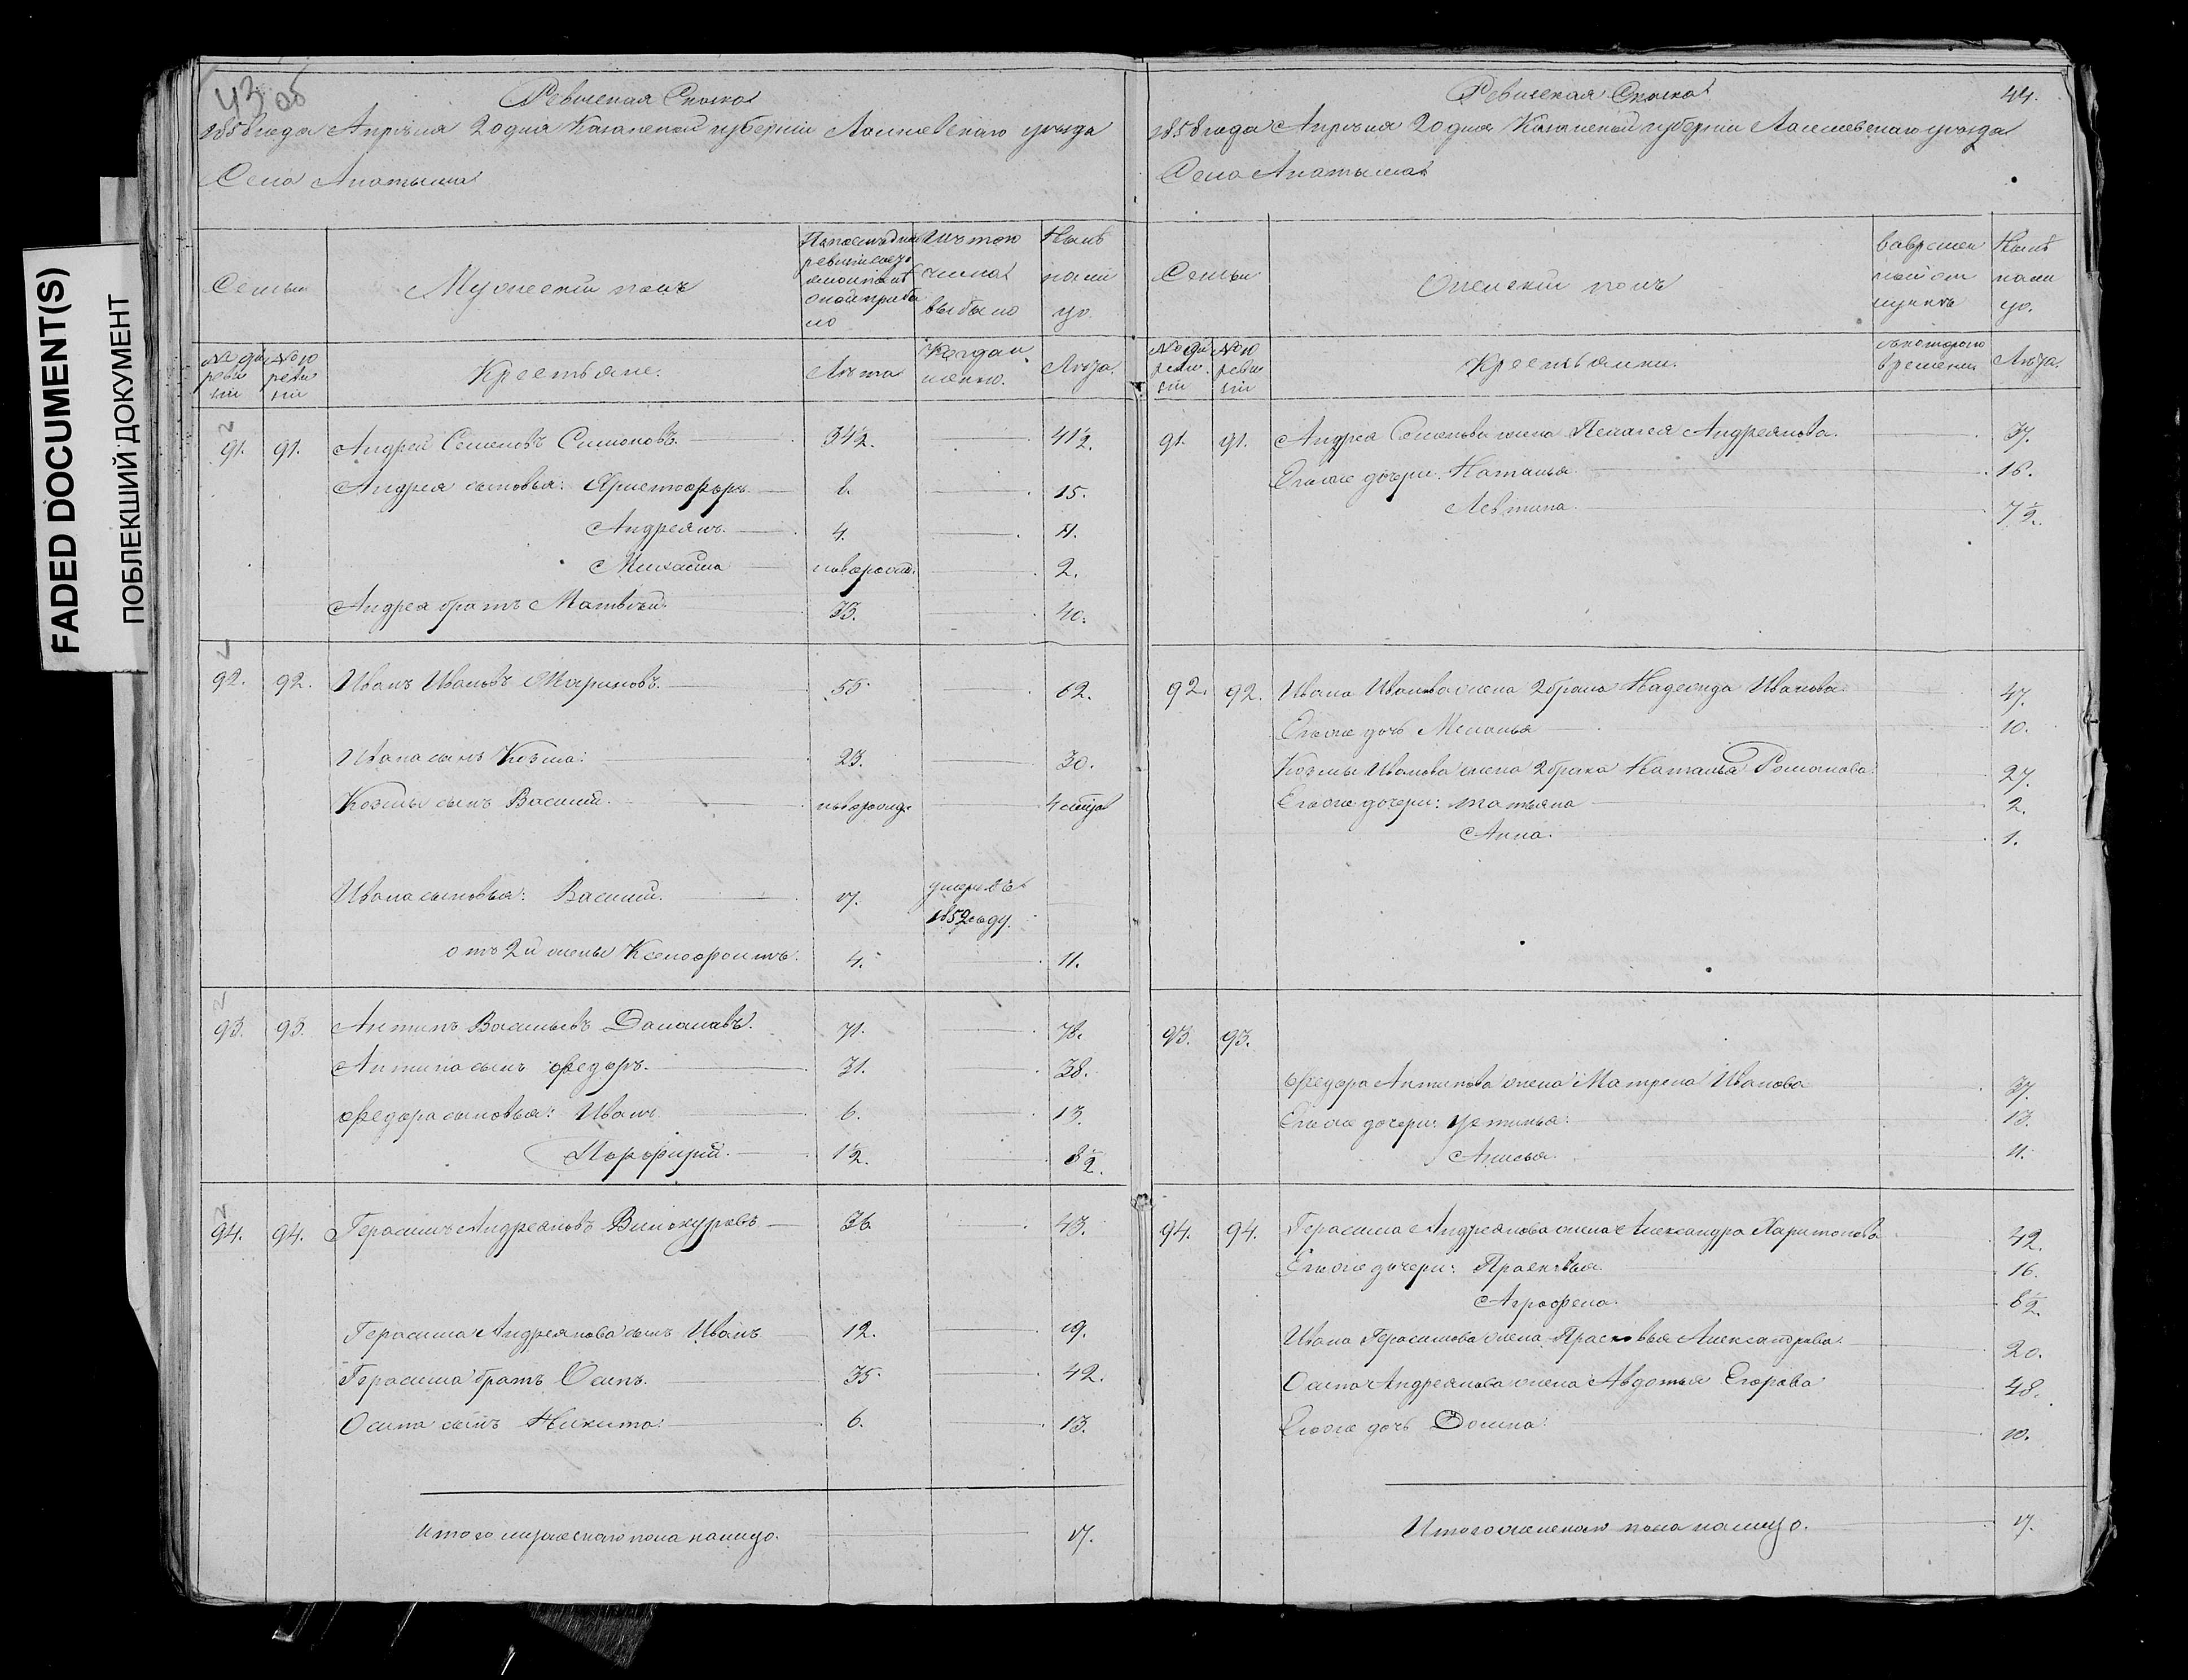 FADED DOCUMENT(S)
ПОБЛЕКШИЙ ДОКУМЕНТ
43 об
Ревизская Сказка
1858 года Апреля 20 дня Казанской губернии Лаишевскаго уезда
Села Анатыша
Семьи
Мужеский полъ
По последней ревизии состояло и после оной прибыло
Изъ того числа выбыло
Ныне на лицо
№ 9й ревизии
№ 10 ревизии
Крестьяне.
Лета
Когда именно.
Лета.
91. 91. Андрей Семеновъ Симоновъ. 34½. 41½
Андрея сыновья: Христофоръ 8. 15.
Андреянъ. 4. 11.
Михайла новорожд. 2.
Андрея братъ Матвей. 33. 40.
92. 92. Иванъ Ивановъ Мариновъ. 55. 62.
Ивана сынъ Козма: 23. 30.
Козмы сынъ Василий. новорожд. 4 месяца
Ивана сыновья: Василий. 17. умеръ въ 1852 году.
отъ 2й жены Ксенофонтъ. 4. 11.
93. 93. Антипъ Васильевъ 71. 78.
Антипа сынъ Федоръ. 31. 38.
Федора сыновья: Иванъ 6. 13.
Порфирий. 1½. 8½.
94. 94. Герасимъ Андреяновъ Винокуровъ 36. 43.
Герасима Андреянова сынъ Иванъ 12. 19.
Герасима братъ Осипъ. 35. 42.
Осипа сынъ Никита: 6. 13.
Итого мужескаго пола на лицо. 17.
Ревизская Сказка 44.
1858 года Апреля 20 дня Казанской губернии Лаишевскаго уезда
Села Анатыша
Семьи
Женский полъ
Во временной отлучке
Ныне на лицо.
№ 9й ревизии
№ 10 ревизии
Крестьянки.
съ котораго времени
Лета.
91. 91. Андрея Семенова жена Пелагея Андреянова. 37.
Ево же дочери: Наталья 18.
Левтина. 7½.
92. 92. Ивана Иванова жена 2 брака Надежда Иванова 47.
Ево же дочь Меланья 10.
Козмы Иванова жена 2 брака Наталья Романова: 27.
Ево же дочери: Татьяна 2.
Анна. 1.
93. 93.
Федора Антипова жена Матрена Иванова 37.
Ево же дочери: Устинья: 13.
Анисья. 11.
94. 94. Герасима Андреянова жена Александра Харитонова 42.
Ево же дочери: Прасковья. 16.
Аграфена. 8½.
Ивана Герасимова жена Прасковья Александрова. 20.
Осипа Андреянова жена Авдотья Егорова 48.
Ево же дочь Домна: 10.
Итого женскаго пола на лицо. 17.